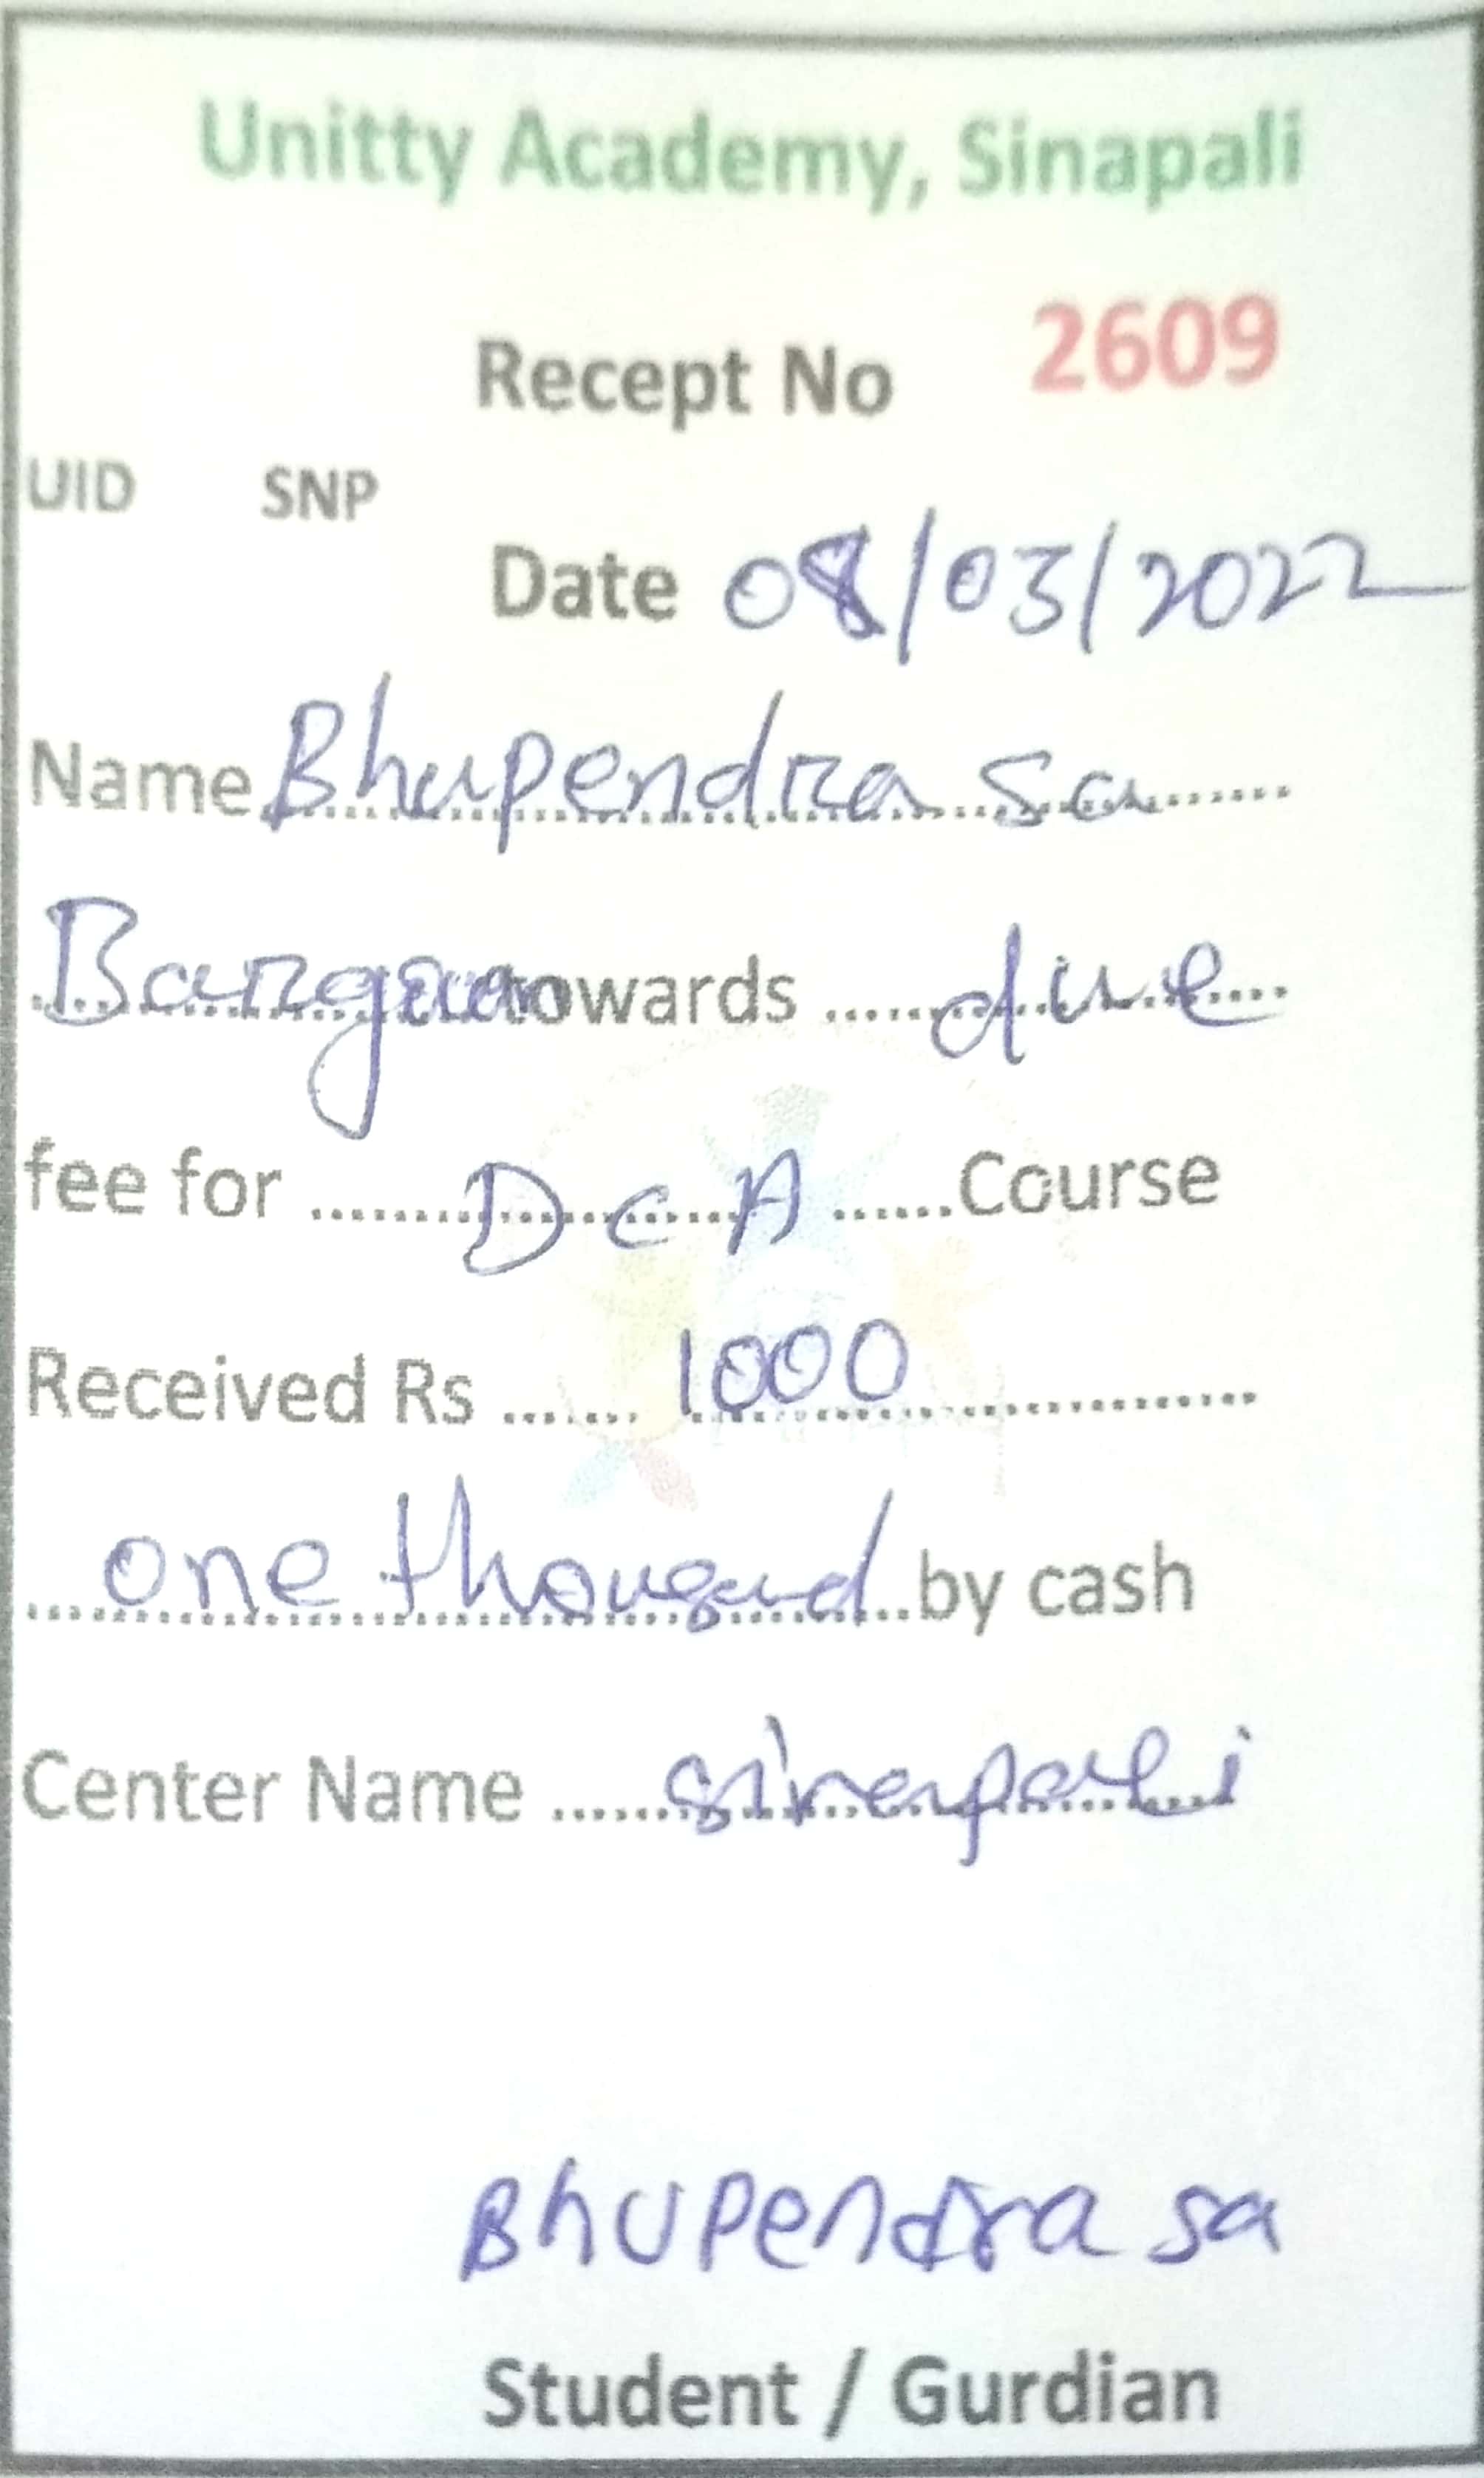 Unitty Academy, Sinapali
Recept No 2609
UID SNP
Date 08/03/2022
Name Bhupendra sa
towards due
fee for DCA Course
Received Rs 1000
one thousand by cash
Center Name sinapali
Bhupendra sa
Student / Gurdian